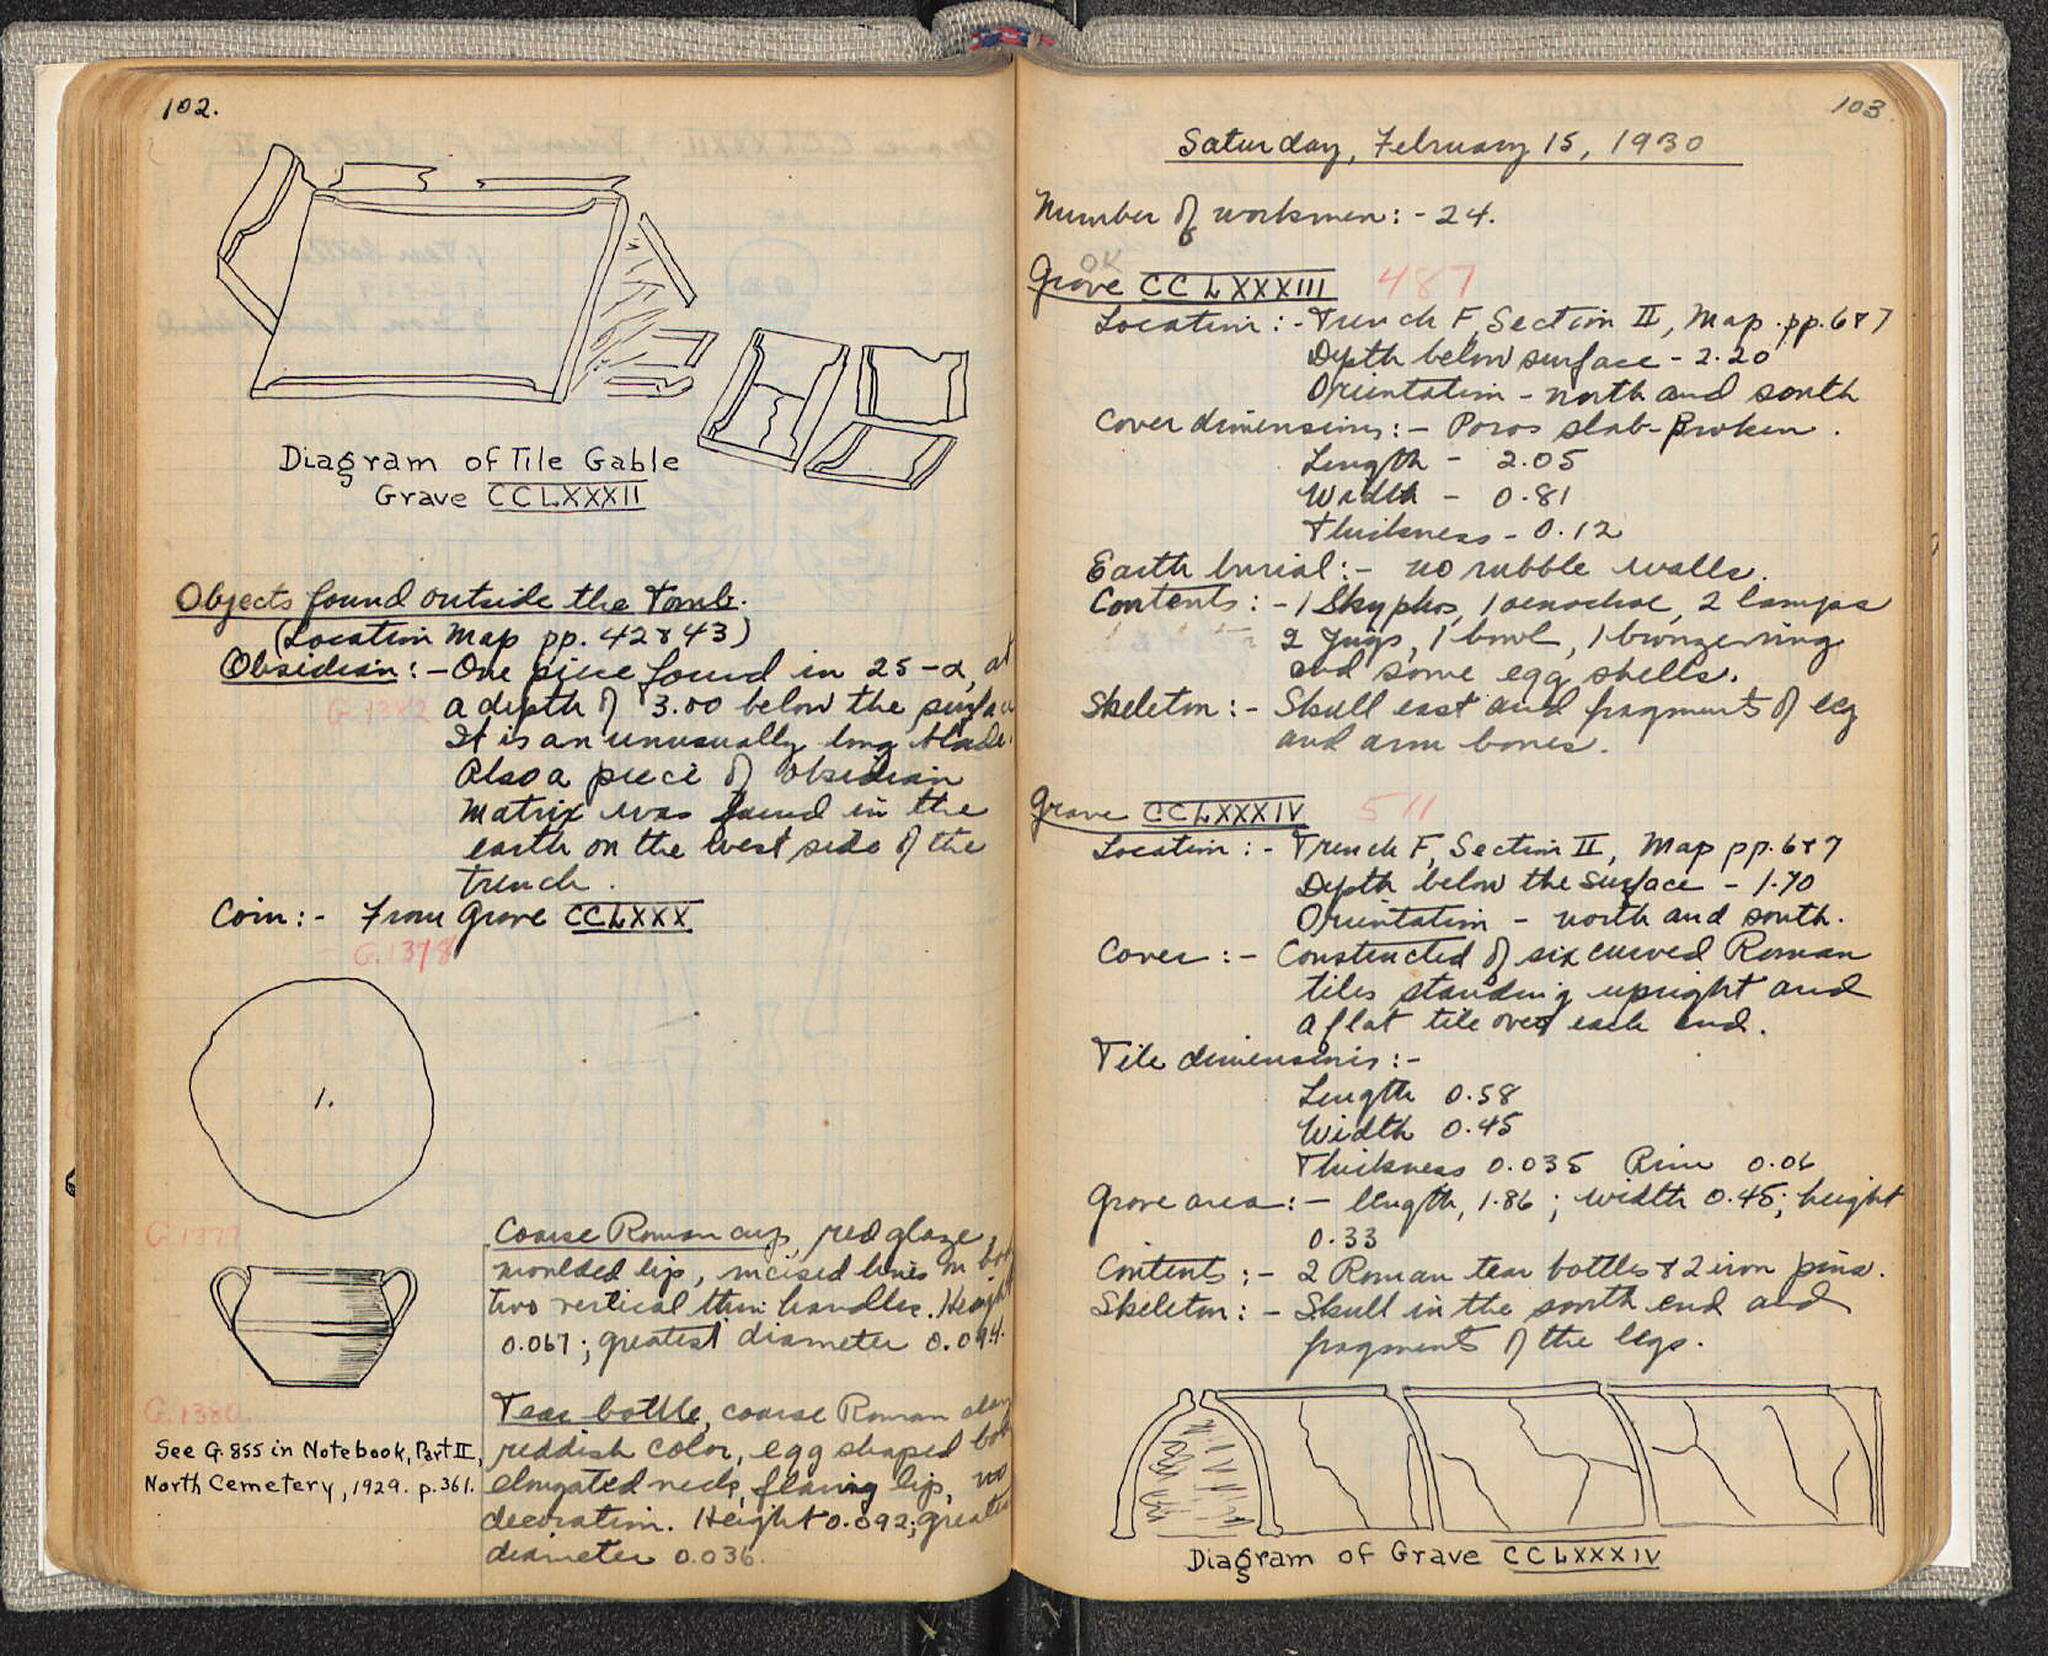 102.
Diagram of Tile Gable
Grave CCLXXXII
Objects found outside the Tomb.
(Location Map pp. 42 & 43)
Obsidian:- One piece found in 25-α, at
G.1382 a depth of 3.00 below the surface
It is an unusually long blade.
Also a piece of obsidian
matrix was found in the
earth on the west side of the
trench.
Coin:- From Grave CCLXXX
G.1378
1.
G.1377
Coarse Roman cup, red glaze,
moulded lip, incised lines on
two vertical thin handles. Height
0.067; greatest diameter 0.094.
G.1380.
See G.855 in Notebook, Part II,
North Cemetery, 1929. p.361.
Tear bottle, coarse Roman
reddish color, egg shaped
elongated neck, flaring lip, no
decoration. Height 0.092; greatest
diameter 0.036.
103
Saturday, February 15, 1930
Number of workmen:- 24.
OK
Grave CCLXXXIII 487
Location:- Trench F, Section II, Map pp. 6 & 7
Depth below surface - 2.20
Orientation - north and south
Cover dimensions:- Poros slab - Broken.
Length - 2.05
Width - 0.81
Thickness - 0.12
Earth burial:- no rubble walls.
Contents:- 1 Skyphos, 1 oenochoe, 2 lamps
2 Jugs, 1 bowl, 1 bronze ring
and some egg shells.
Skeleton:- Skull east and fragments of leg
and arm bones.
Grave CCLXXXIV 511
Location:- Trench F, Section II, Map pp. 6 & 7
Depth below the surface - 1.70
Orientation - north and south.
Cover:- Constructed of six curved Roman
tiles standing upright and
a flat tile over each end.
Tile dimensions:-
Length 0.58
Width 0.45
Thickness 0.035 Rim 0.06
Grave area:- length, 1.86; width 0.45; height
0.33
Contents:- 2 Roman tear bottles & 2 iron pins.
Skeleton:- Skull in the south end and
fragments of the legs.
Diagram of Grave CCLXXXIV